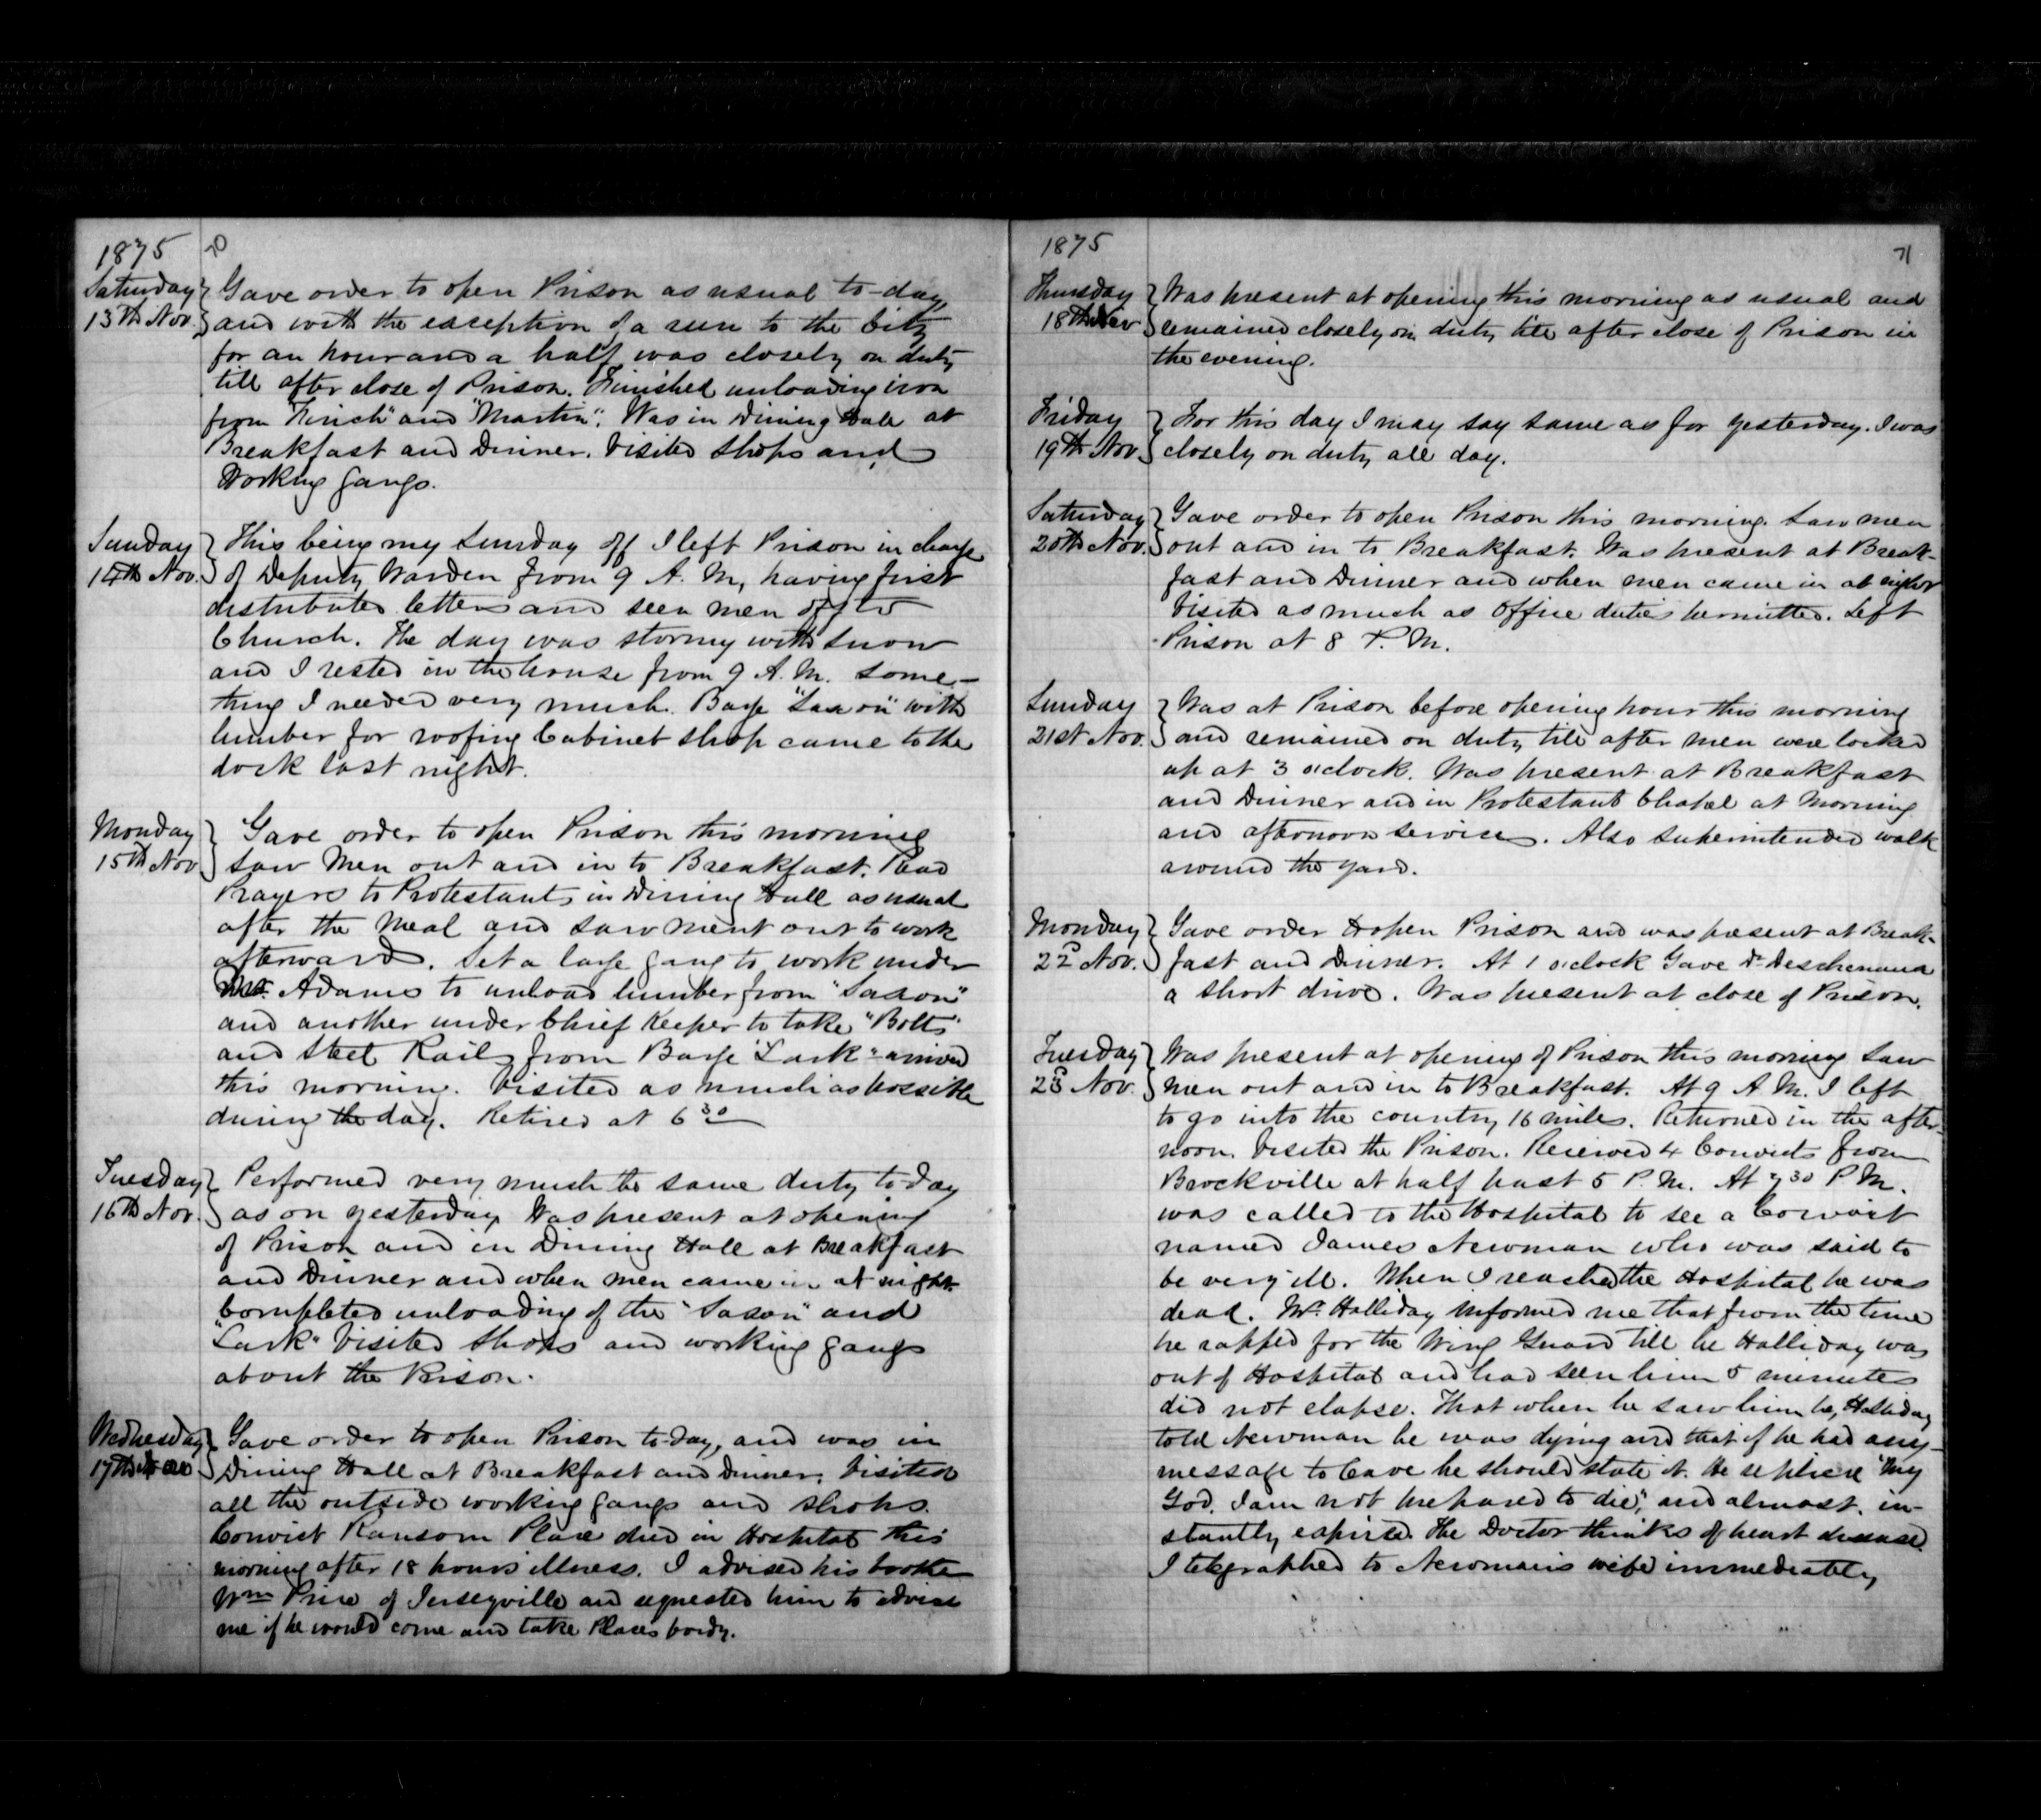 1875 70
Saturday Gave order to open Prison as usual to-day
13th Nov. and with the exception of a run to the City
for an hour and a half was closely on duty
till after close of Prison. Finished unloading iron
from "Finch" and "Martin". Was in Dining Hall at
Breakfast and Dinner. Visited Shops and
Working Gangs.
Sunday This being my Sunday off I left Prison in charge
14th Nov. of Deputy Warden from 9 A. M, having first
distributed letters and seen men off to
Church. The day was stormy with snow
and I rested in the house from 9 A. M. some-
thing I needed very much. Barge "Saxon" with
lumber for roofing Cabinet shop came to the
dock last night.
Monday Gave order to open Prison this morning
15th Nov saw Men out and in to Breakfast. Read
Prayers to Protestants in Dining Hall as usual
after the Meal and saw ment out to work
afterward. Set a large gang to work under
Mr. Adams to unload lumber from "Saxon"
and another under Chief Keeper to take "Bolts"
and Steel Rails from Barge "Lark" arrived
this morning. Visited as much as possible
during the day. Retired at 6 30
Tuesday Performed very much the same duty to-day
16th Nov. as on yesterday. Was present at opening
of Prison and in Dining Hall at Breakfast
and Dinner and when men came in at night.
Completed unloading of the "Saxon" and
"Lark" Visited Shops and working gangs
about the Prison.
Wednesday Gave order to open Prison to-day, and was in
17th Dining Hall at Breakfast and Dinner. Visited
all the outside working gangs and shops.
Convict Ransom Place died in Hospital this
morning after 18 hours illness. I advised his brother
Wm Price of Jerseyville and requested him to advise
me if he would come and take Places body.
1875 71
Thursday Was present at opening this morning as usual and
18th Nov remained closely on duty till after close of Prison in
the evening.
Friday For this day I may say same as for yesterday. I was
19th Nov. closely on duty all day.
Saturday Gave order to open Prison this morning. Saw men
20th Nov. out and in to Breakfast. Was present at Break-
fast and Dinner and when men came in at night
Visited as much as Office duties permitted. Left
Prison at 8 P. M.
Sunday Was at Prison before opening hour this morning
21st Nov. and remained on duty till after men were locked
up at 3 o'clock. Was present at Breakfast
and Dinner and in Protestant Chapel at Morning
and afternoon services. Also superintended walk
around the yard.
Monday Gave order to open Prison and was present at Break-
22d Nov. fast and Dinner. At 1 o'clock Gave Dr
a short drive. Was present at close of Prison.
Tuesday Was present at opening of Prison this morning Saw
23d Nov. men out and in to Breakfast. At 9 A M. I left
to go into the country 16 miles. Returned in the after-
noon. Visited the Prison. Received 4 Convicts from
Brockville at half past 5 P. M. At 7 30 P M.
was called to the Hospital to see a Convict
named James Newman who was said to
be very ill. When I reached the Hospital he was
dead. Mr. Halliday informed me that from the time
he rapped for the Wing Guard till he Halliday was
out of Hospital and had seen him 5 minutes
did not elapse. That when he saw him he, Halliday
told Newman he was dying and that if he had any
message to leave he should state it. He replied "My
God, I am not prepared to die", and almost in-
stantly expired. The Doctor thinks of heart disease.
I telegraphed to Newman's wife immediately